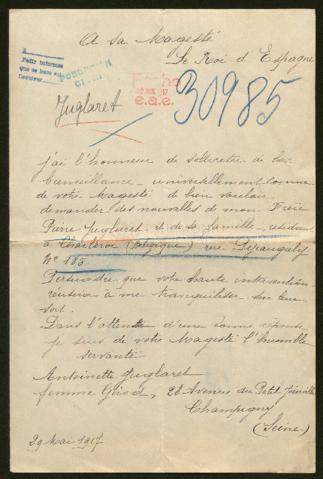 A sa Magesté
Le Roi d'Espagne
A
Pedir informes
que se hace en
Juglaret
e.a.e.
30985
j'ai l'honneur de solicitér à la
bienveillance universellement connue
de votre Magesté de bien vouloir
demander des nouvelles de mon Frère
Pierre Juglaret et de sa famille résidant
à Charleroi (Belgique) rue
N° 185
Persuadée que votre haute intervention
réussira à me tranquiliser sur leur
sort.
Dans l'attente d'une bonne réponse
je suis de votre Magesté l'humble
servante
Antoinette Juglaret
femme 28 Avenue du Petit Joinville
Champigny
(Seine)
29 Mai 1917